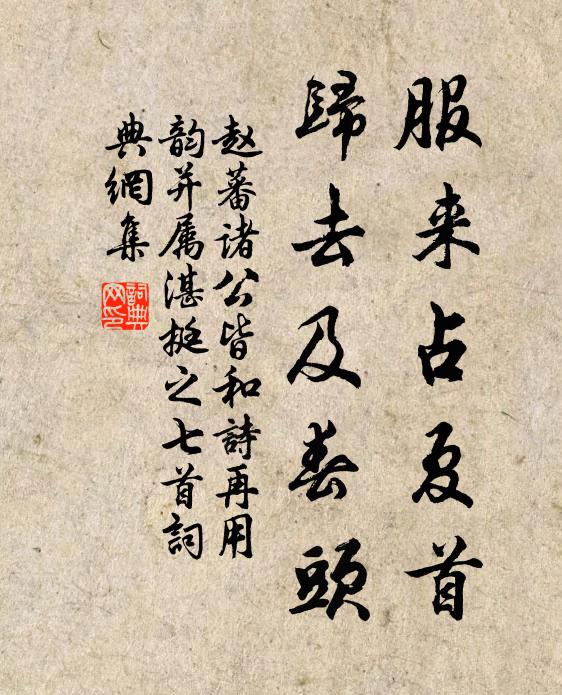 服来占夏首
歸去及春頭
赵蕃诸公皆和詩再用
韵并属湛挺之七首詞
典網集
詞典网印